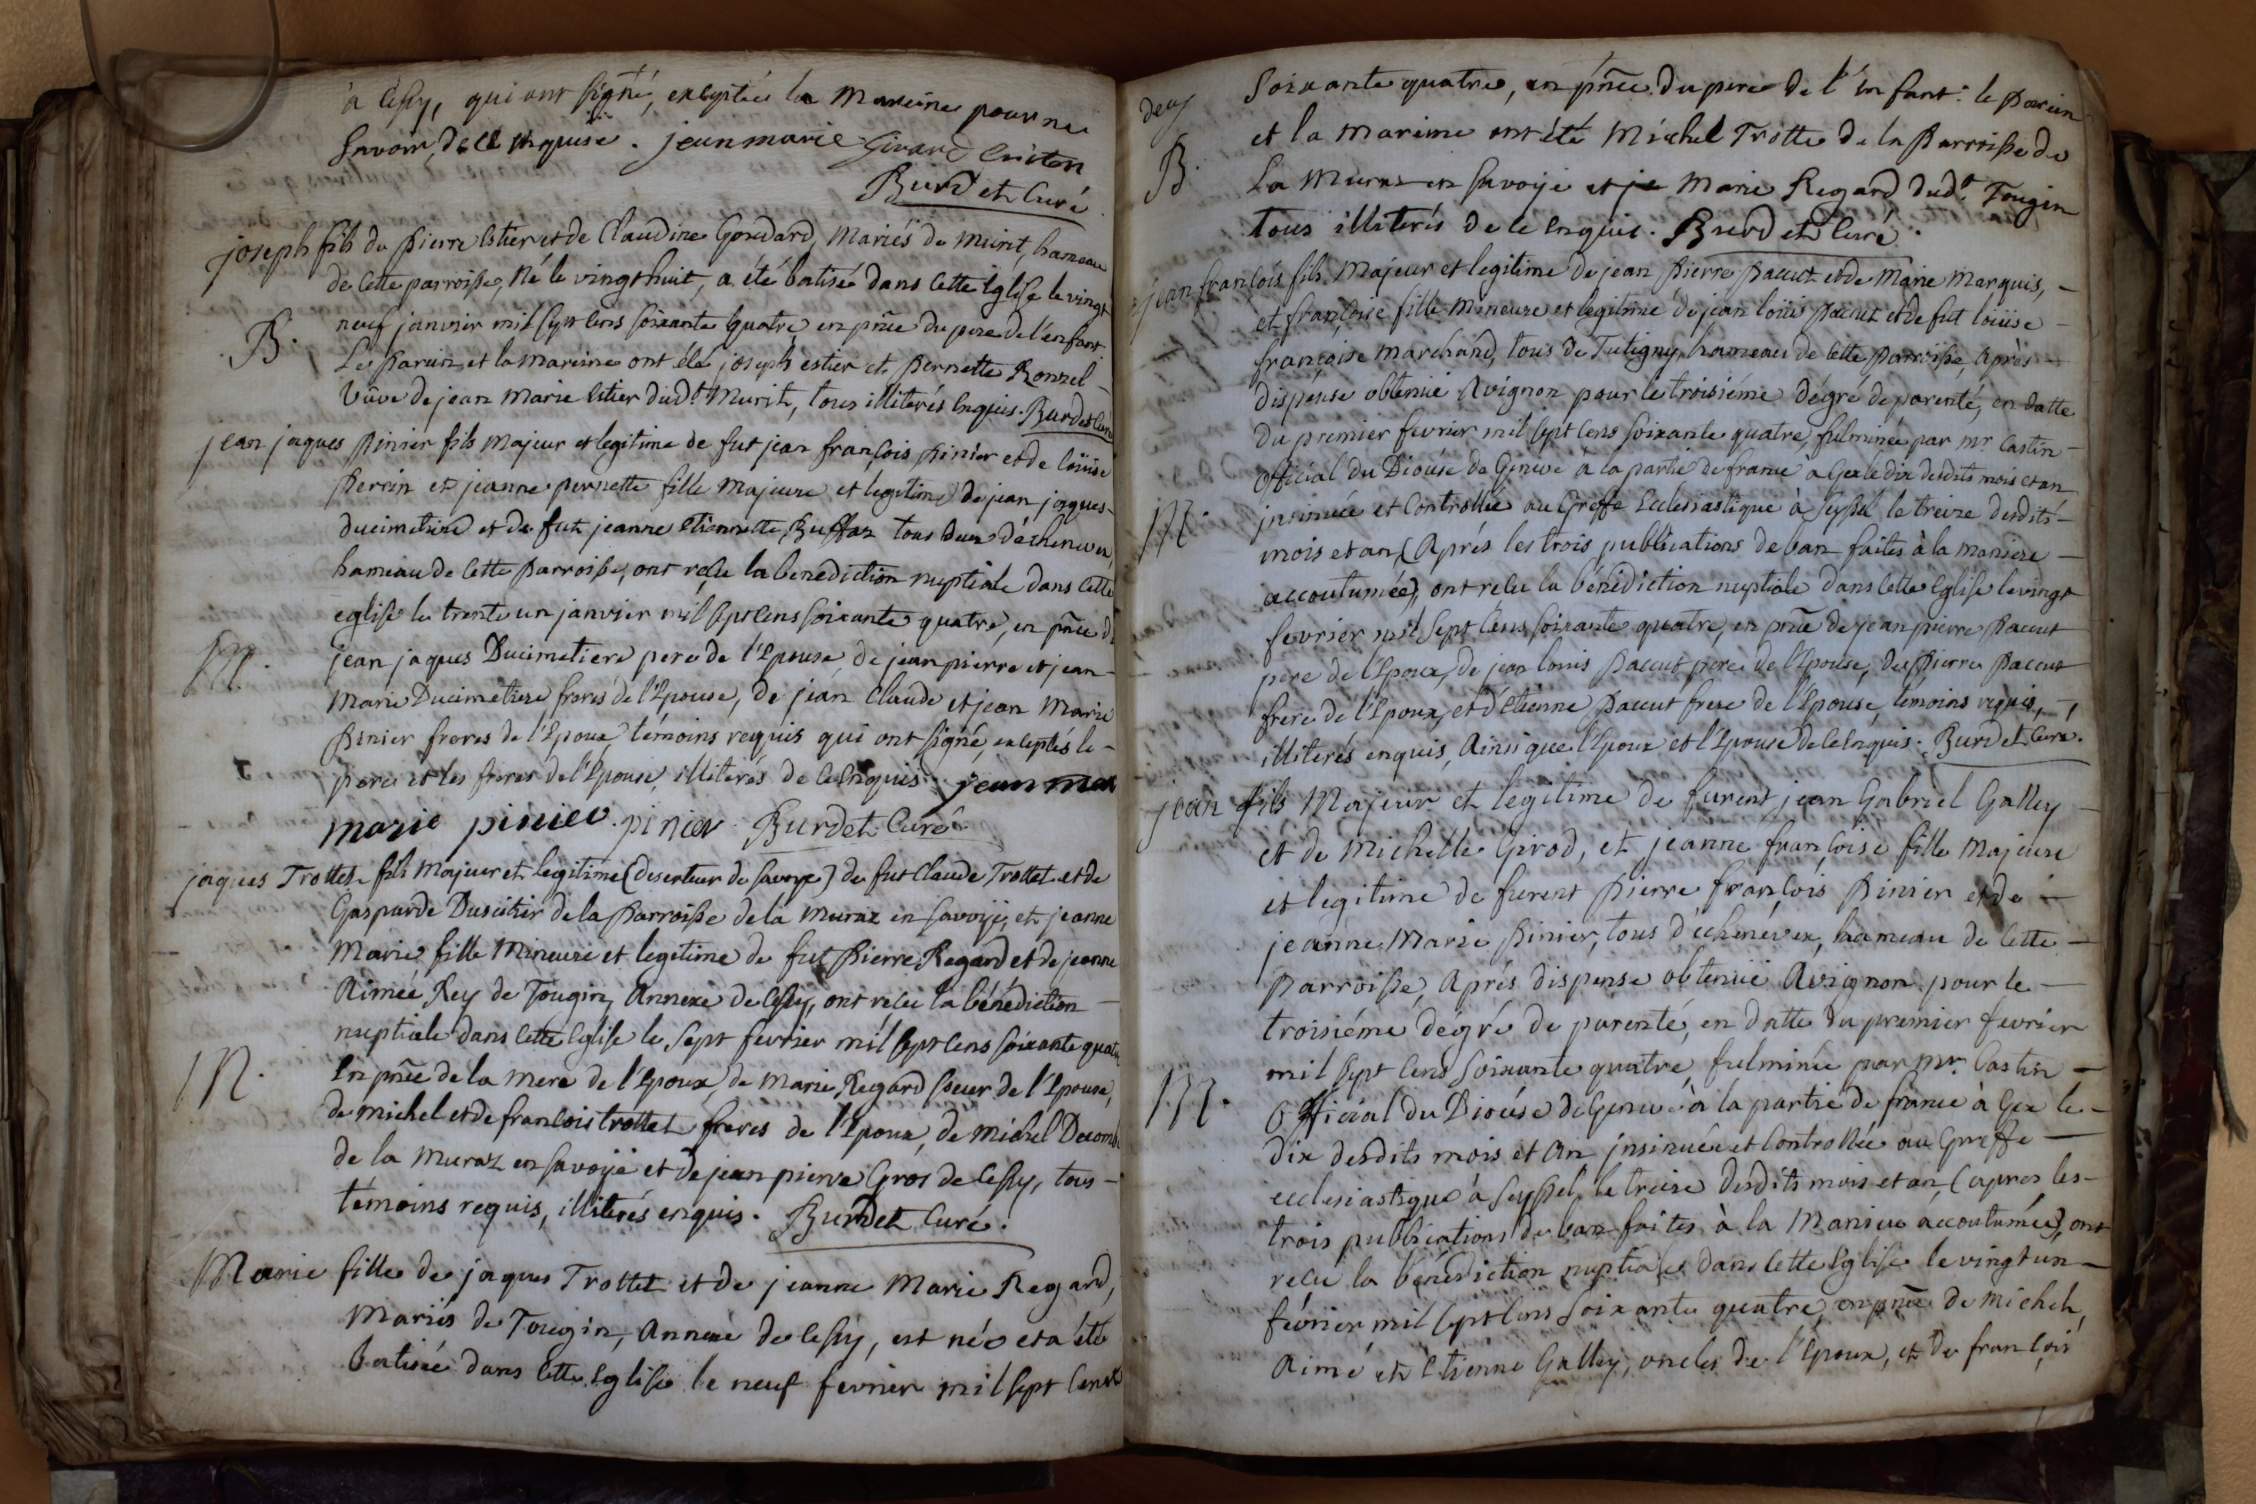 à Cessy, qui ont signé, exceptée la Mareine pour ne
savoir, de ce enquise. jean marie Girard Criston
Burdet Curé
joseph fils de pierre Estier et de Claudine Goudard, Mariés de Murit, hameau
de Cette parroisse, Né le vingt huit, a été batisé dans Cette Eglise le vingt
neuf janvier mil sept Cens soixante quatre en pñce du pere de l'enfant
B.
Le Parein et la mareine ont été joseph estier et Pernette Rouzel
Vûve de jean Marie Estier dud.t Murit, tous illiterés Enquis. Burdet Curé
jean jaques Pinier fils Majeur et legitime de fut jean françois Pinier et de loüise
Perrin et jeanne pernette fille majeure et legitime de jean jaques
ducimetiere et de fut jeanne Etiennette Buffaz tous deux d'échenevex,
hameau de Cette Parroisse, ont reçu la benediction nuptiale dans Cette
eglise le trente un janvier mil sept Cens soixante quatre, en pñce de
M.
jean jaques Ducimetiere pere de l'Epouse, de jean pierre et jean
Marie Ducimetiere freres de l'Epouse, de jean Claude et jean Marie
Pinier freres de l'Epoux, témoins requis qui ont signé, exceptés le
pere et les freres de l'Epouse, illiterés de ce Enquis. jean mar
marie pinier. pinier Burdet Curé
jaques Trottet fils Majeur et legitime (deserteur de Savoye) de fut Claude Trottet et de
Gasparde Dusitier de la Parroisse de la Muraz en Savoÿe, et jeanne
Marie fille Mineure et legitime de fut Pierre Regard et de jeanne
Aimée Rey de Tougin, Annexe de Cessy, ont reçu la bénédiction
nuptiale dans Cette Eglise le sept fevrier mil sept Cens soixante quatre
M.
En pñce de la Mere de l'Epoux, de Marie Regard soeur de l'Epouse,
de michel et de francois trottet freres de l'Epoux, de Michel Decomb
de la Muraz en Savoÿe et de jean pierre Gros de Cessy, tous
témoins requis, illiterés enquis. Burdet Curé.
Marie fille de jaques Trottet et de jeanne Marie Regard,
Mariés de Tougin, Annexe de Cessy, est née et a été
batisée dans Cette Eglise le neuf fevrier mil sept Cens
deux
soixante quatre, en pñce du pere de l'Enfant: le Parein
et la Mareine ont été Michel Trottet de la Parroisse de
B.
La Muraz en Savoye et je Marie Regard dud.t Tougin
tous illiterés de ce Enquis. Burdet Curé.
jean françois fils Majeur et legitime de jean pierre Paccut et de Marie Marquis,
et françoise fille Mineure et legitime de jean loüis Paccut et de fut loüise
françoise Marchand, tous de Tutigny hameau de Cette Parroisse, Après
dispense obtenüe Avignon pour le troisiéme dégré de parenté, en datte
du premier fevrier mil sept Cens soixante quatre, fulminée par mr. Castin
Official du Diocése de Genève à la partie de france a Gex le dix desdits mois et an
M.
jnsinuée et Controllée au Greffe Ecclesiastique à Seyssel le treize desdits
mois et an, (Aprés les trois publications de ban faites à la maniere
accoutumée), ont reçu la bénédiction nuptiale dans Cette Eglise le vingt
fevrier mil sept Cens soixante quatre, en pñce de jean pierre Paccut
pere de l'Epoux, de jean louis Paccut pere de l'Epouse, de Pierre Paccut
frere de l'Epoux, et d'Etienne Paccut frere de l'Epouse, temoins requis,
illiterés enquis, Ainsi que l'Epoux et l'Epouse de ce Enquis. Burdet Curé.
jean fils Majeur et legitime de furent jean Gabriel Galley
et de Michelle Girod, et jeanne françoise fille Majeure
et legitime de furent Pierre françois Pinier et de
jeanne Marie Pinier, tous d'échenévex, hameau de Cette
Parroisse, Après dispense obtenüe Avignon pour le
troisiéme dégré de parenté, en datte du premier fevrier
mil sept Cens soixante quatre, fulminée par mr. Castin
M.
Official du Diocése de Genève à la partie de france à Gex le
dix desdits mois et an jnsinuée et Controllée au Greffe
ecclesiastique à Seyssel, le treize desdits mois et an, (apres les
trois publications de ban faites à la Maniere accoutumée), ont
reçu la bénédiction nuptiale dans Cette Eglise le vingt un
février mil sept Cens soixante quatre, en pñce de Michel,
Aimé et Etienne Galley, oncles de l'Epoux, et de françois